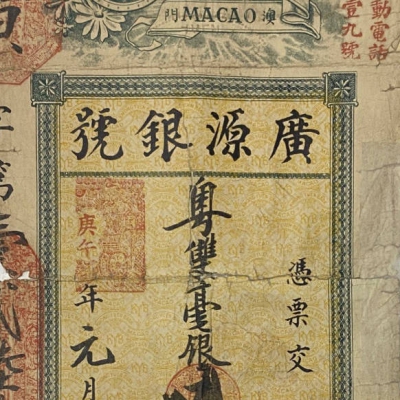 澳 MACAO 門
動電話
壹九號
廣源銀號
憑票交
粵雙毫銀
庚午年元月
字第